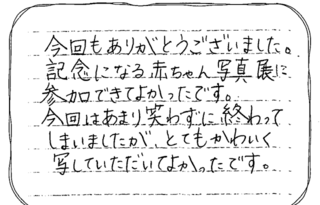 今回もありがとうございました。
記念になる赤ちゃん写真展に
参加できてよかったです。
今回はあまり笑わずに終わって
しまいましたが、とてもかわいく
写していただいてよかったです。